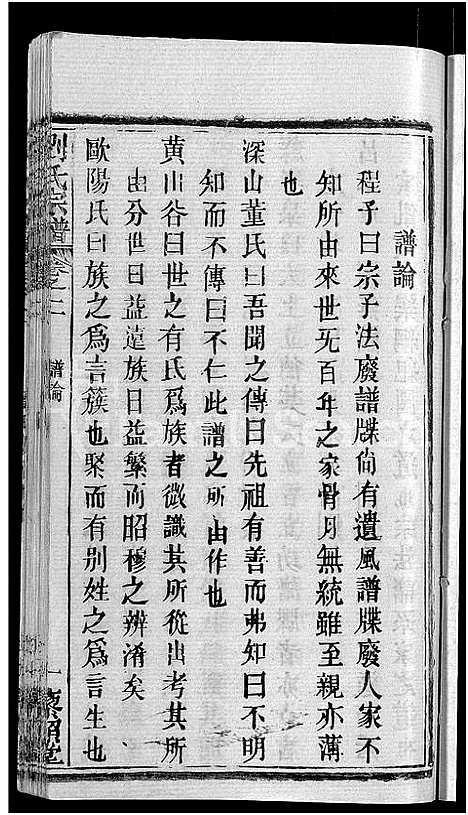 譜論
程子曰宗子法廢譜牒尙有遺風譜牒廢人家不
知所由來世旡百年之家骨月無統雖至親亦薄
也
深山董氏曰吾聞之傳曰先祖有善而弗知曰不明
知而不傳曰不仁此譜之所由作也
黃山谷曰世之有氏爲族者微識其所從出考其所
由分世日益遠族日益繁而昭穆之辨淆矣
歐陽氏曰族之爲言簇也聚而有別姓之爲言生也
劉氏宗譜
卷之二
譜論
一